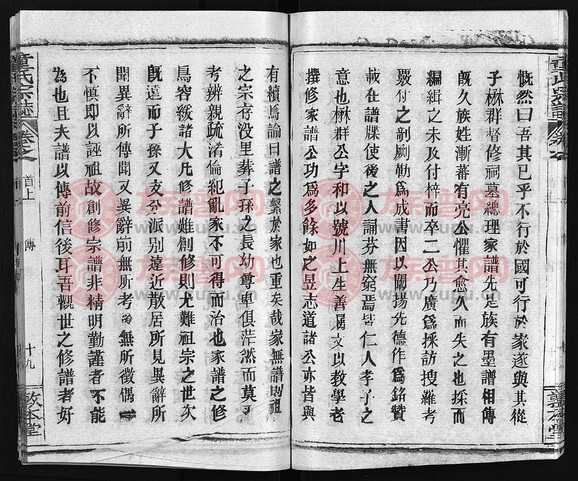 慨然曰吾其已乎不行於國可行於家遂與其從
子楙群督修祠墓總理家譜先是族有墨譜相傳
既久族姓漸蕃有亮公懼其愈久而失之也採而
編緝之未及付梓而卒二公乃廣爲採訪搜羅考
覈付之剞劂勒爲成書因以闡揚先德作爲銘贊
載在譜牒使後之人誦芬無窮焉皆仁人孝子之
意也楙群公字和以號川上生善屬文以教學老
撰修家譜公功爲多餘如之昱志道諸公亦皆與
有績焉論曰譜之繫於家也重矣哉家無譜則祖
之宗存没里彝子孫之長幼尊卑俱茫然而莫
考辨親疏淆倫紀亂家不可得而治也家譜之修
烏容緩諸大凡修譜難創修則尤難祖宗之世次
既遠而子孫又支分派別遠近散居所見異辭所
聞異辭所傳聞又異辭前無所考後無所徵偶一
不慎即以誣祖故創修宗譜非精明勤謹者不能
爲也且夫譜以傳前信後耳吾觀世之修譜者好
童氏宗譜
卷之
首上
傳
十九
敦本堂